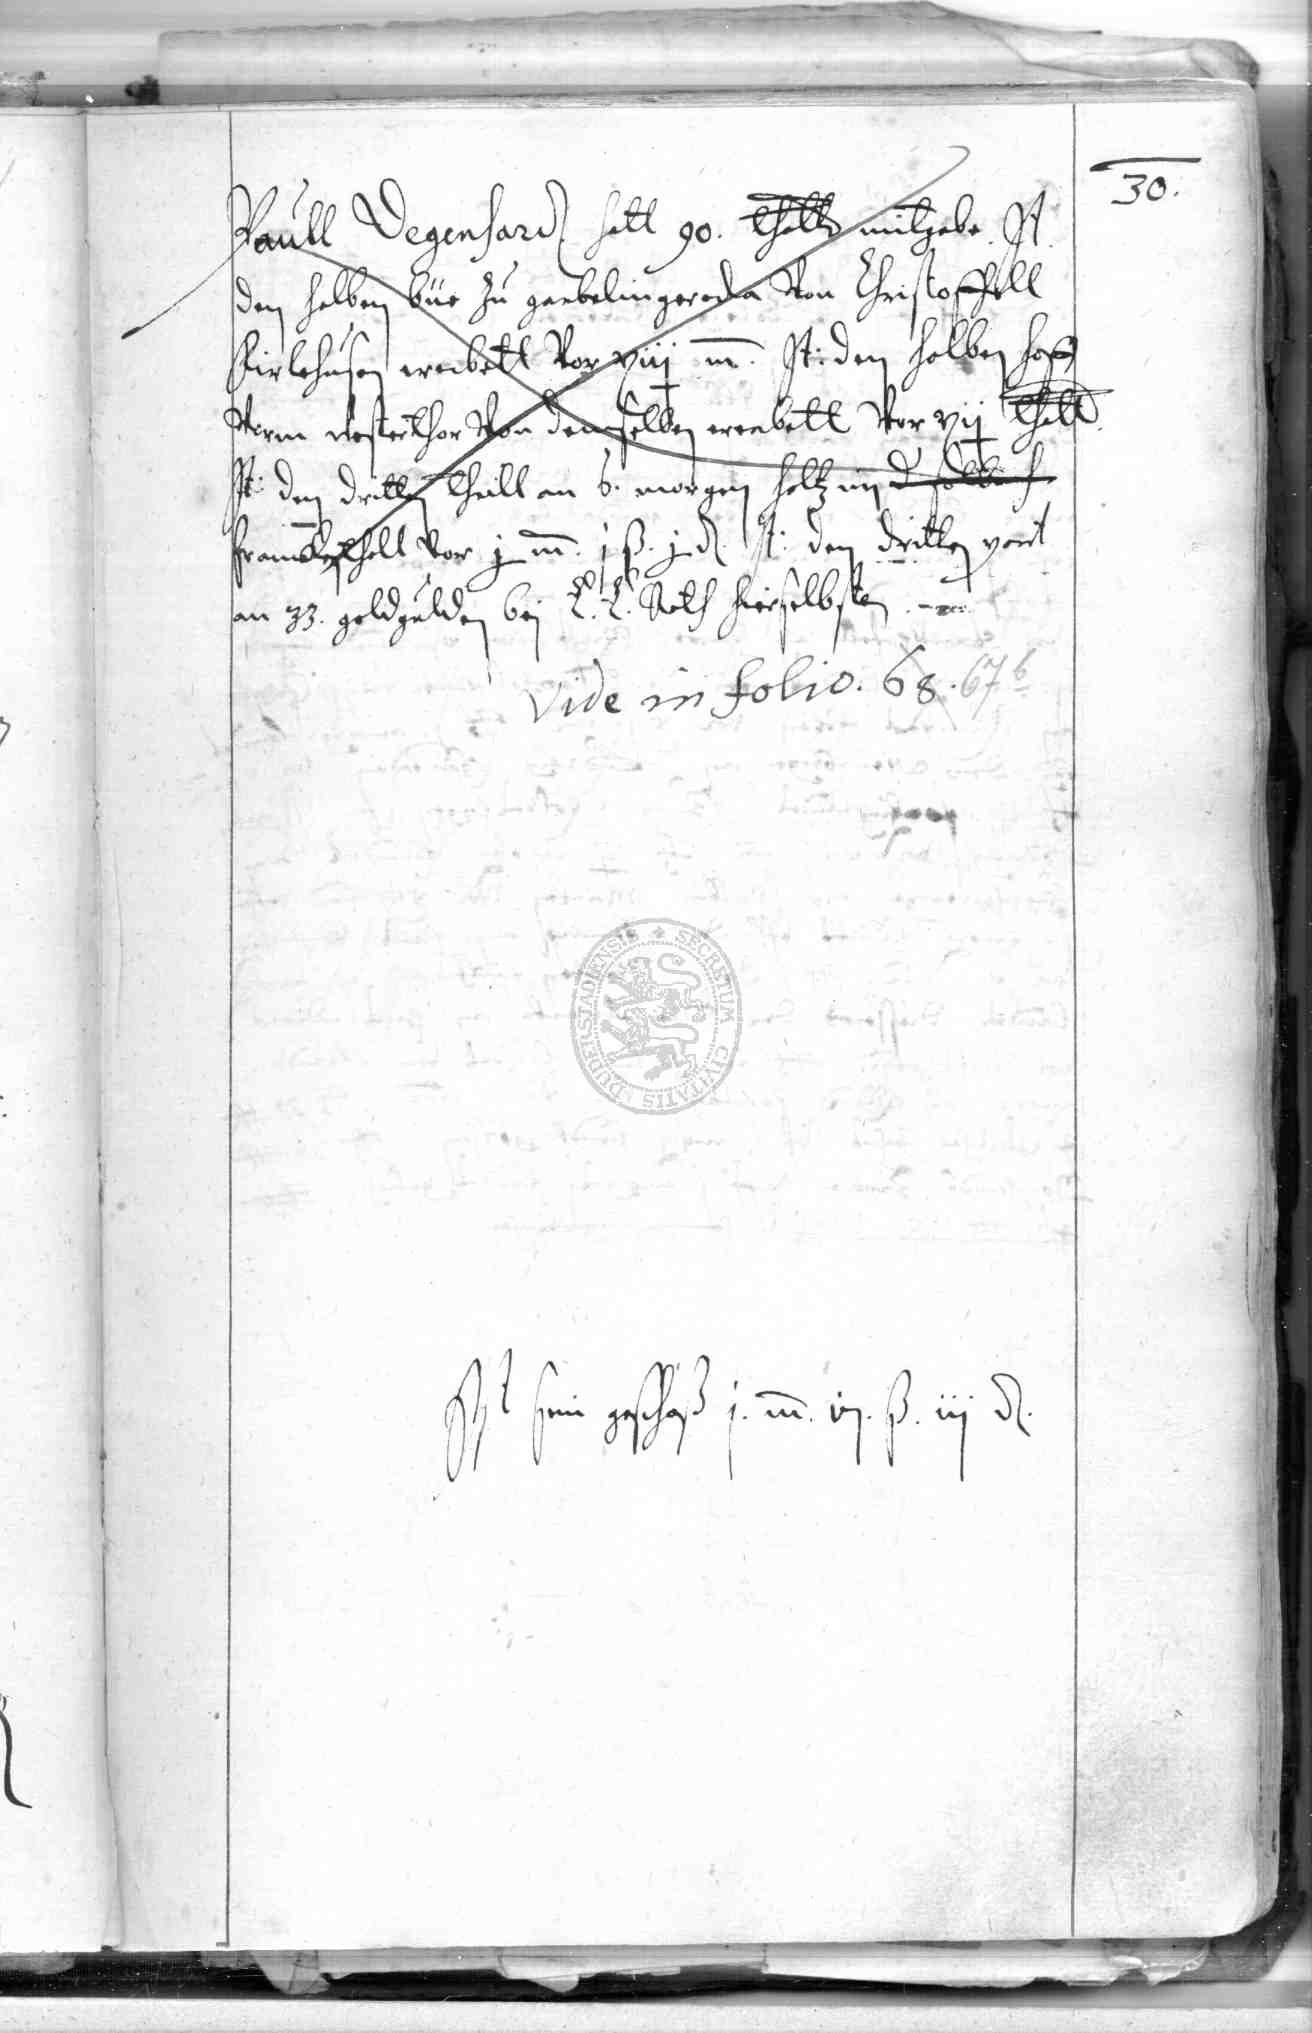 30.
Paull Degenhard hatt 90. thall mitgabe. It.
den halben büe zu gerbelingeroda von Christoffell
Kirlehusen ererbett vor xiij m. It: den halben hoff
vorm westerthor von demselben ererbett vor xij thall.
It: den dritten theill an 6. morgen holtz im
vor j m. j ß. j d. It: den dritten part
an 33. goldgulden bej E. E. Rath hierselbsten
Vide in folio. 68. 67 b
SECRETUM CIVITATIS DUDERSTADIENSIS
Ist sein geschoß j. m. vj. ß. iij d.